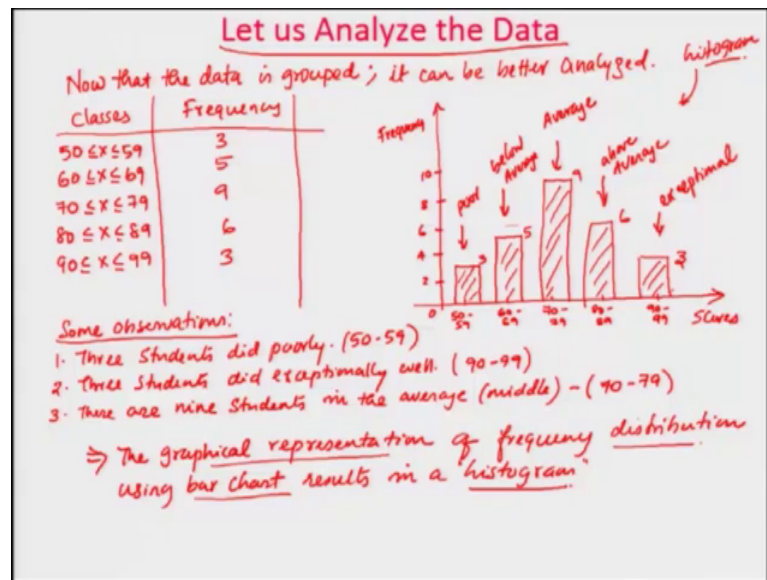 Let us Analyze the Data
Now that the data is grouped; it can be better analyzed.
histogram
Classes Frequency
50 ≤ x ≤ 59 3
60 ≤ x ≤ 69 5
70 ≤ x ≤ 79 9
80 ≤ x ≤ 89 6
90 ≤ x ≤ 99 3
Frequency
poor
below Average
Average
above Average
exceptional
10
8
6
4
2
0
3
5
9
6
3
50-59
60-69
70-79
80-89
90-99
Scores
Some observations:
1. Three Students did poorly. (50-59)
2. Three Students did exceptionally well. (90-99)
3. There are nine Students in the average (middle) - (70-79)
⇒ The graphical representation of frequency distribution
using bar chart results in a "histogram"